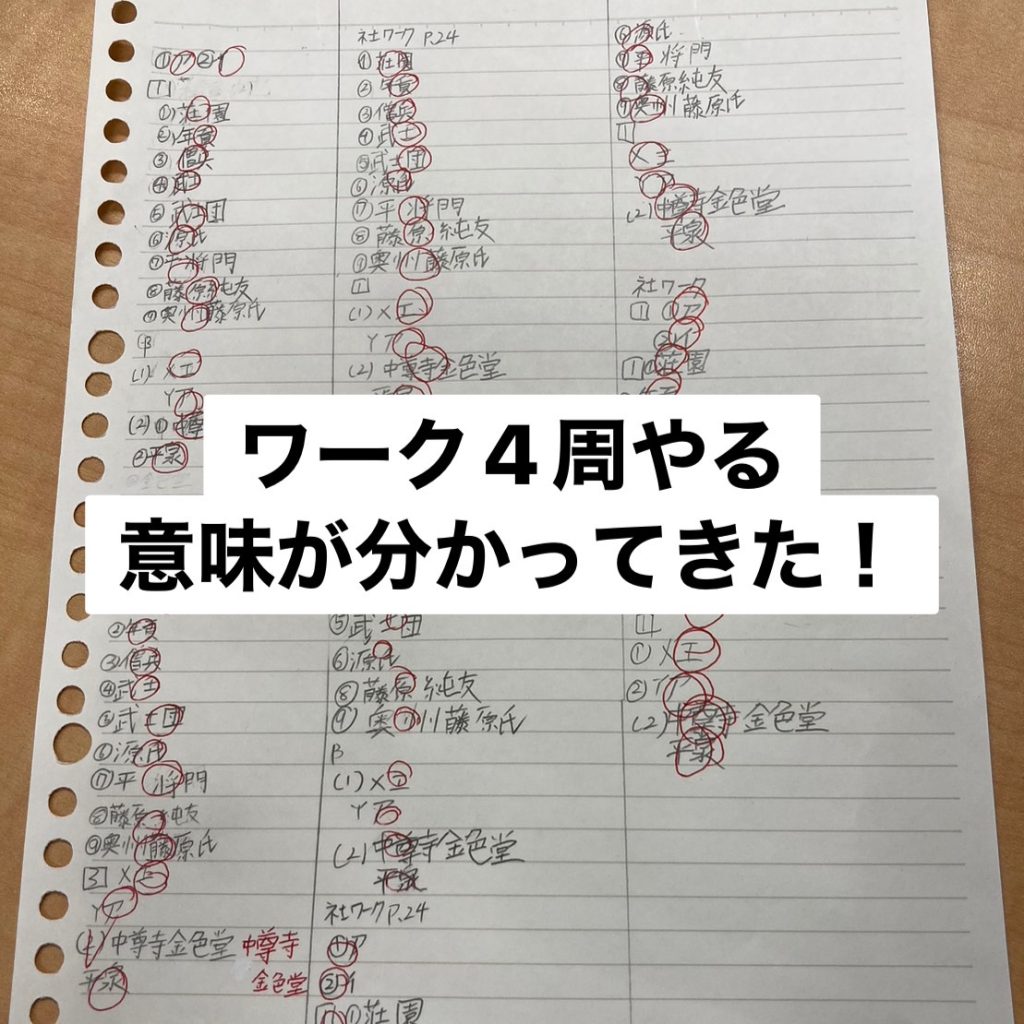 ①ア②イ
1
①荘園
②年貢
③僧兵
④武士
⑤武士団
⑥源氏
⑦平将門
⑧藤原純友
⑨奥州藤原氏
(1) X エ
Y ア
(2)① 中尊
②平泉
社ワーク P.24
①荘園
②年貢
③僧兵
④武士
⑤武士団
⑥源氏
⑦平 将門
⑧藤原純友
⑨奥州藤原氏
(1) X エ
Y ア
(2) 中尊寺金色堂
⑥源氏
⑦平 将門
⑧藤原純友
⑨奥州藤原氏
X エ
(2) 中尊寺金色堂
平泉
社ワーク
1 ①ア
②イ
1 ①荘園
ワーク4周やる
意味が分かってきた！
②年貢
③僧兵
④武士
⑤武士団
⑥源氏
⑦平 将門
⑧藤原純友
⑨奥州藤原氏
3 X エ
Y ア
中尊寺金色堂 中尊寺
平泉 金色堂
⑤武士団
⑥源氏
⑧藤原純友
⑨奥州藤原氏
(1) X エ
Y ア
(2) 中尊寺金色堂
平泉
社ワークP.24
①ア
②イ
①荘園
① X エ
② Y ア
(2) 中尊寺金色堂
平泉